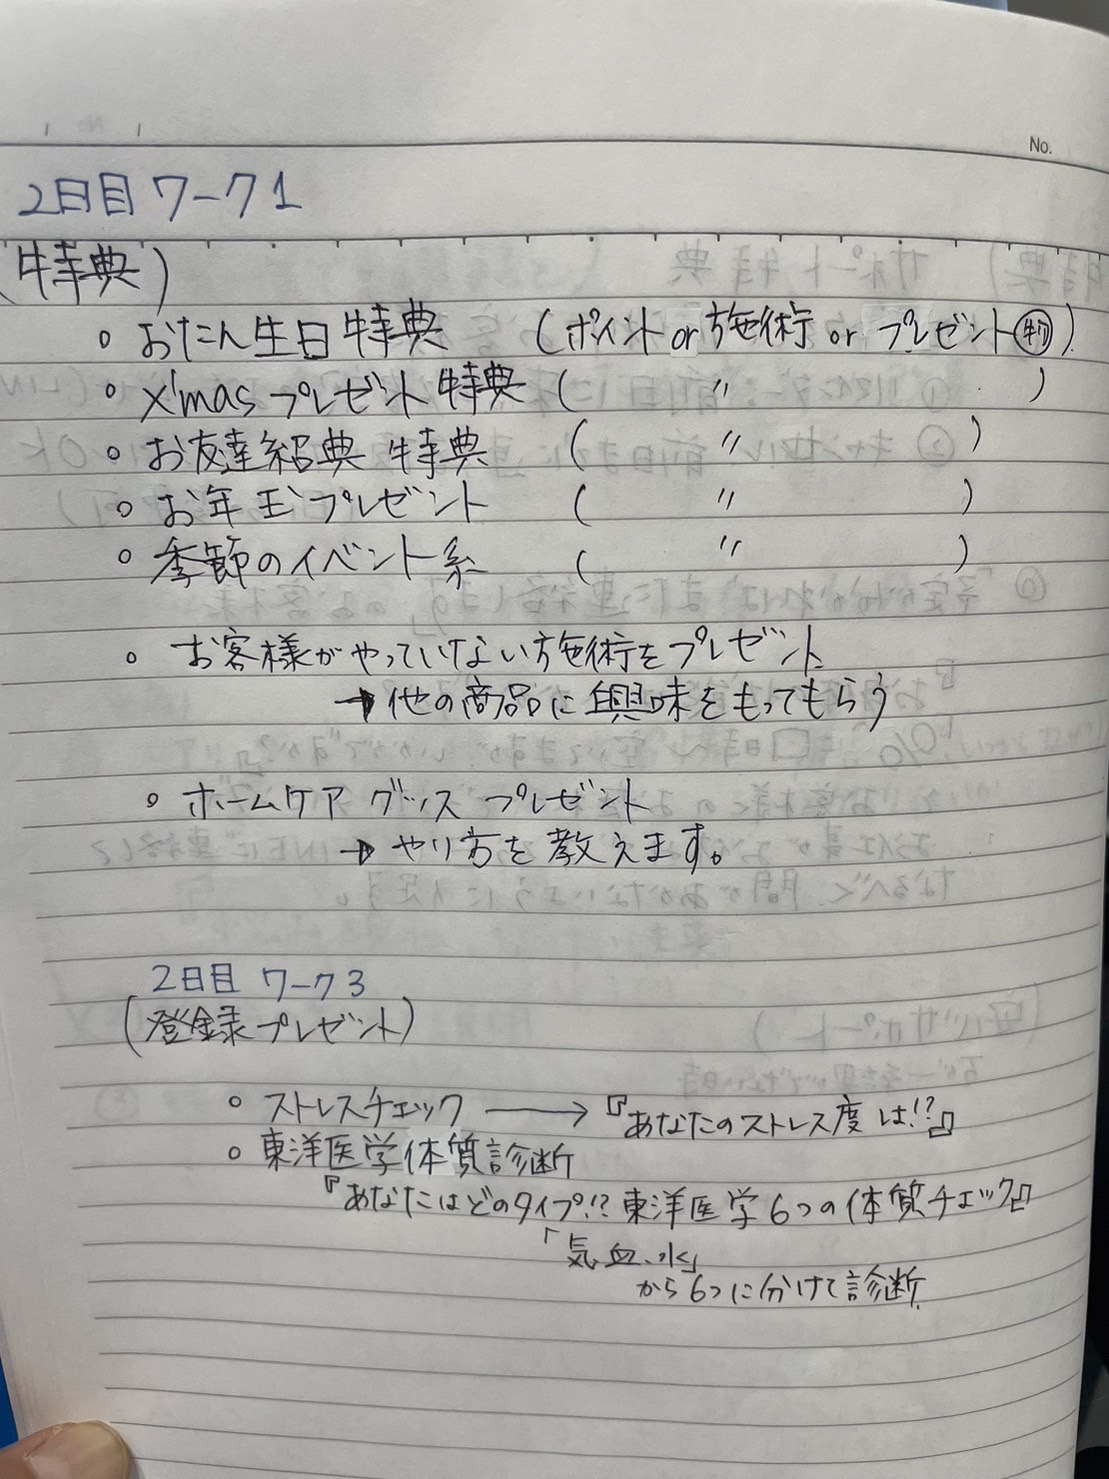 No.
2日目 ワーク1
(特典)
○ おたん生日特典 (ポイント or 施術 or プレゼント物)
○ X'mas プレゼント特典 ( 〃 )
○ お友達紹典 特典 ( 〃 )
○ お年玉プレゼント ( 〃 )
○ 季節のイベント系 ( 〃 )
○ お客様がやっていない施術をプレゼント
→ 他の商品に興味をもってもらう
○ ホームケア グッズ プレゼント
→ やり方を教えます。
2日目 ワーク3
(登録プレゼント)
○ ストレスチェック → 『あなたのストレス度は!?』
○ 東洋医学体質診断
『あなたはどのタイプ!? 東洋医学6つの体質チェック』
「気.血.水」
から6つに分けて診断